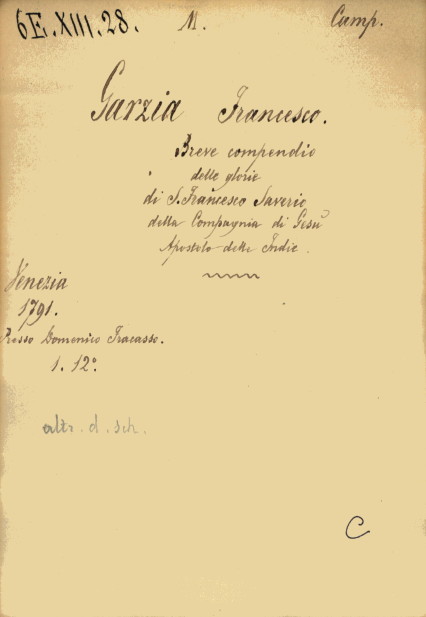 6E.XIII.28. M. Camp.
Garzia Francesco.
Breve compendio
delle glorie
di S. Francesco Saverio
della Compagnia di Gesù
Apostolo delle Indie.
Venezia
1791.
Presso Domenico Fracasso.
1. 12°.
altr. d. sch.
C